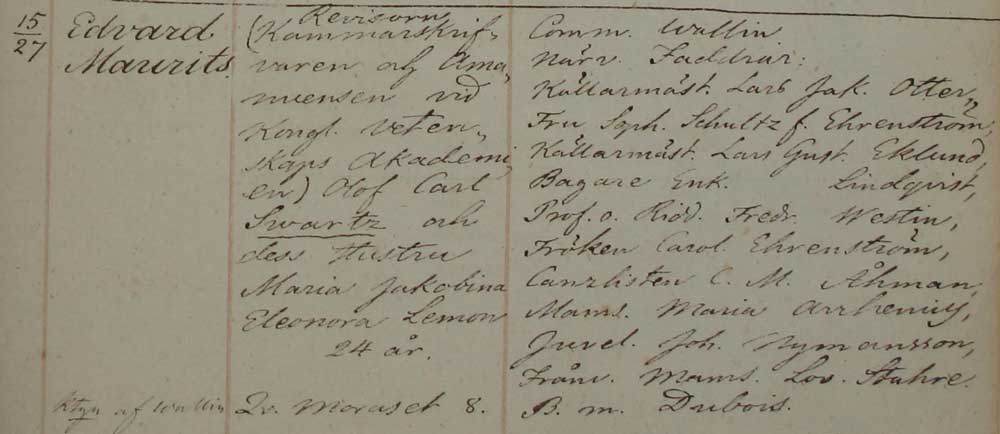 15
27
Edvard
Maurits.
Revisorn
(Kammarskrif„
varen och Ama„
nuensen vid
Kongl. Veten„
skaps Akademi„
en) Olof Carl
Swartz och
dess Hustru
Maria Jakobina
Eleonora Lemon
24 år.
Comm. Wallin
Närv. Faddrar:
Källarmäst. Lars Jak. Otter„
Fru Soph. Schultz f. Ehrenström,
Källarmäst. Lars Gust. Eklund,
Bagare Enk. Lindqvist,
Prof. o. Ridd. Fredr. Westin,
Fröken Carol. Ehrenström,
Canzlisten C. M. Åhman,
Mams. Maria Arrhenius,
Juvel. Joh. Nymansson,
Frånv. Mams. Lov. Stuhre.
af Wallin
Qv. Moraset 8.
B. m. Dubois.